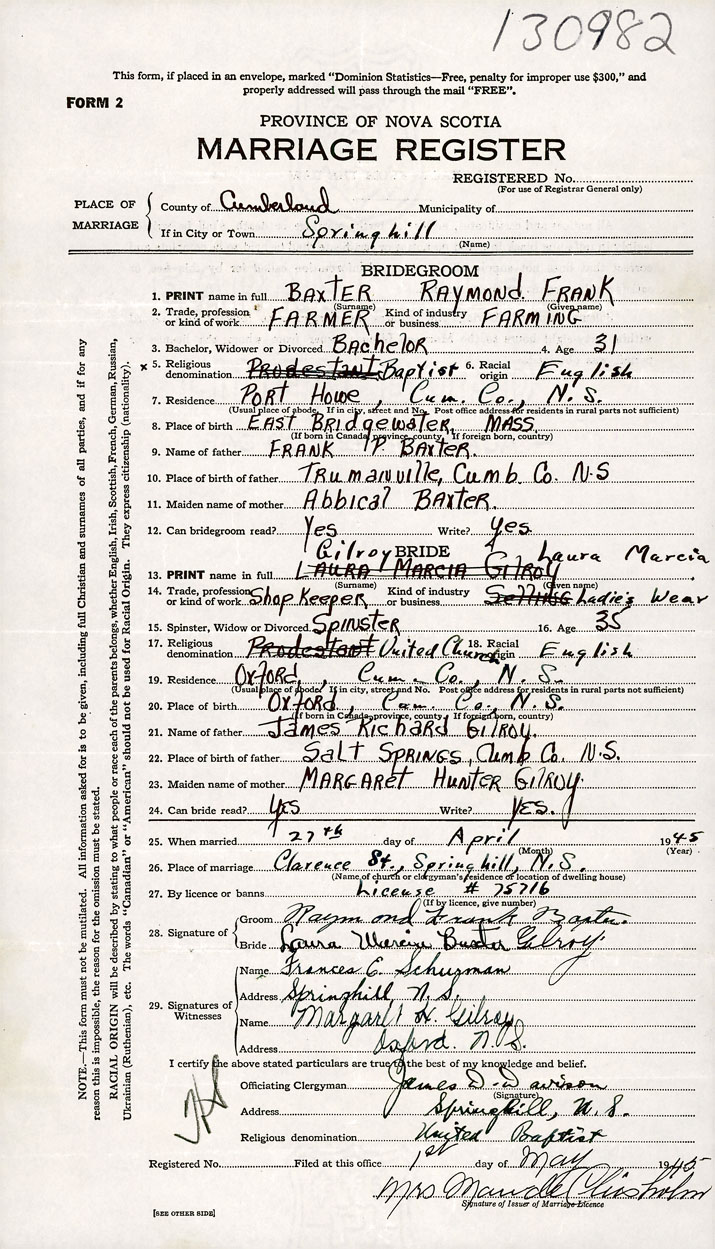 130982
This form, if placed in an envelope, marked "Dominion Statistics—Free, penalty for improper use $300," and
properly addressed will pass through the mail "FREE".
FORM 2
PROVINCE OF NOVA SCOTIA
MARRIAGE REGISTER
REGISTERED No.
(For use of Registrar General only)
PLACE OF MARRIAGE
County of Cumberland Municipality of
If in City or Town Springhill
(Name)
BRIDEGROOM
1. PRINT name in full BAXTER RAYMOND FRANK
(Surname) (Given name)
2. Trade, profession or kind of work FARMER Kind of industry or business FARMING
3. Bachelor, Widower or Divorced BACHELOR 4. Age 31
x 5. Religious denomination Prodestant Baptist 6. Racial origin English
7. Residence PORT HOWE, Cum. Co., N. S.
(Usual place of abode. If in city, street and No. Post office address for residents in rural parts not sufficient)
8. Place of birth EAST BRIDGEWATER, MASS.
(If born in Canada, province, county, If foreign born, country)
9. Name of father FRANK P. BAXTER.
10. Place of birth of father TRUMANVILLE, CUMB. CO. N.S
11. Maiden name of mother Abbical BAXTER.
12. Can bridegroom read? Yes Write? Yes.
BRIDE
Gilroy Laura Marcia
13. PRINT name in full LAURA MARCIA GILROY
(Surname) (Given name)
14. Trade, profession or kind of work SHOP KEEPER Kind of industry or business Selling Ladie's Wear
15. Spinster, Widow or Divorced SPINSTER 16. Age 35
17. Religious denomination Prodestant United Church 18. Racial origin English
19. Residence OXFORD, Cum. Co., N. S.
(Usual place of abode. If in city, street and No. Post office address for residents in rural parts not sufficient)
20. Place of birth OXFORD, Cum. Co., N. S.
(If born in Canada, province, county If foreign born, country)
21. Name of father JAMES RICHARD GILROY.
22. Place of birth of father SALT SPRINGS, Cumb Co. N.S.
23. Maiden name of mother MARGARET HUNTER GILROY.
24. Can bride read? Yes Write? YES.
25. When married 27th day of April 1945
(Month) (Year)
26. Place of marriage Clarence St., Springhill, N. S.
(Name of church or clergyman's residence of location of dwelling house)
27. By licence or banns License # 75716
(If by licence, give number)
28. Signature of
Groom Raymond Frank Baxter.
Bride Laura Marcia Baxter Gilroy.
29. Signatures of Witnesses
Name Frances E. Schurman
Address Springhill N. S.
Name Margaret H. Gilroy
Address Oxford. N. S.
I certify the above stated particulars are true to the best of my knowledge and belief.
Officiating Clergyman James D. Davison
(Signature)
Address Springhill, N. S.
Religious denomination United Baptist
Registered No. Filed at this office 1st day of May 1945
Mrs Maude Chisholm
Signature of Issuer of Marriage Licence
[SEE OTHER SIDE]
NOTE.—This form must not be mutilated. All information asked for is to be given, including full Christian and surnames of all parties, and if for any
reason this is impossible, the reason for the omission must be stated.
RACIAL ORIGIN will be described by stating to what people or race each of the parents belongs, whether English, Irish, Scottish, French, German, Russian,
Ukrainian (Ruthenian), etc. The words "Canadian" or "American" should not be used for Racial Origin. They express citizenship (nationality).